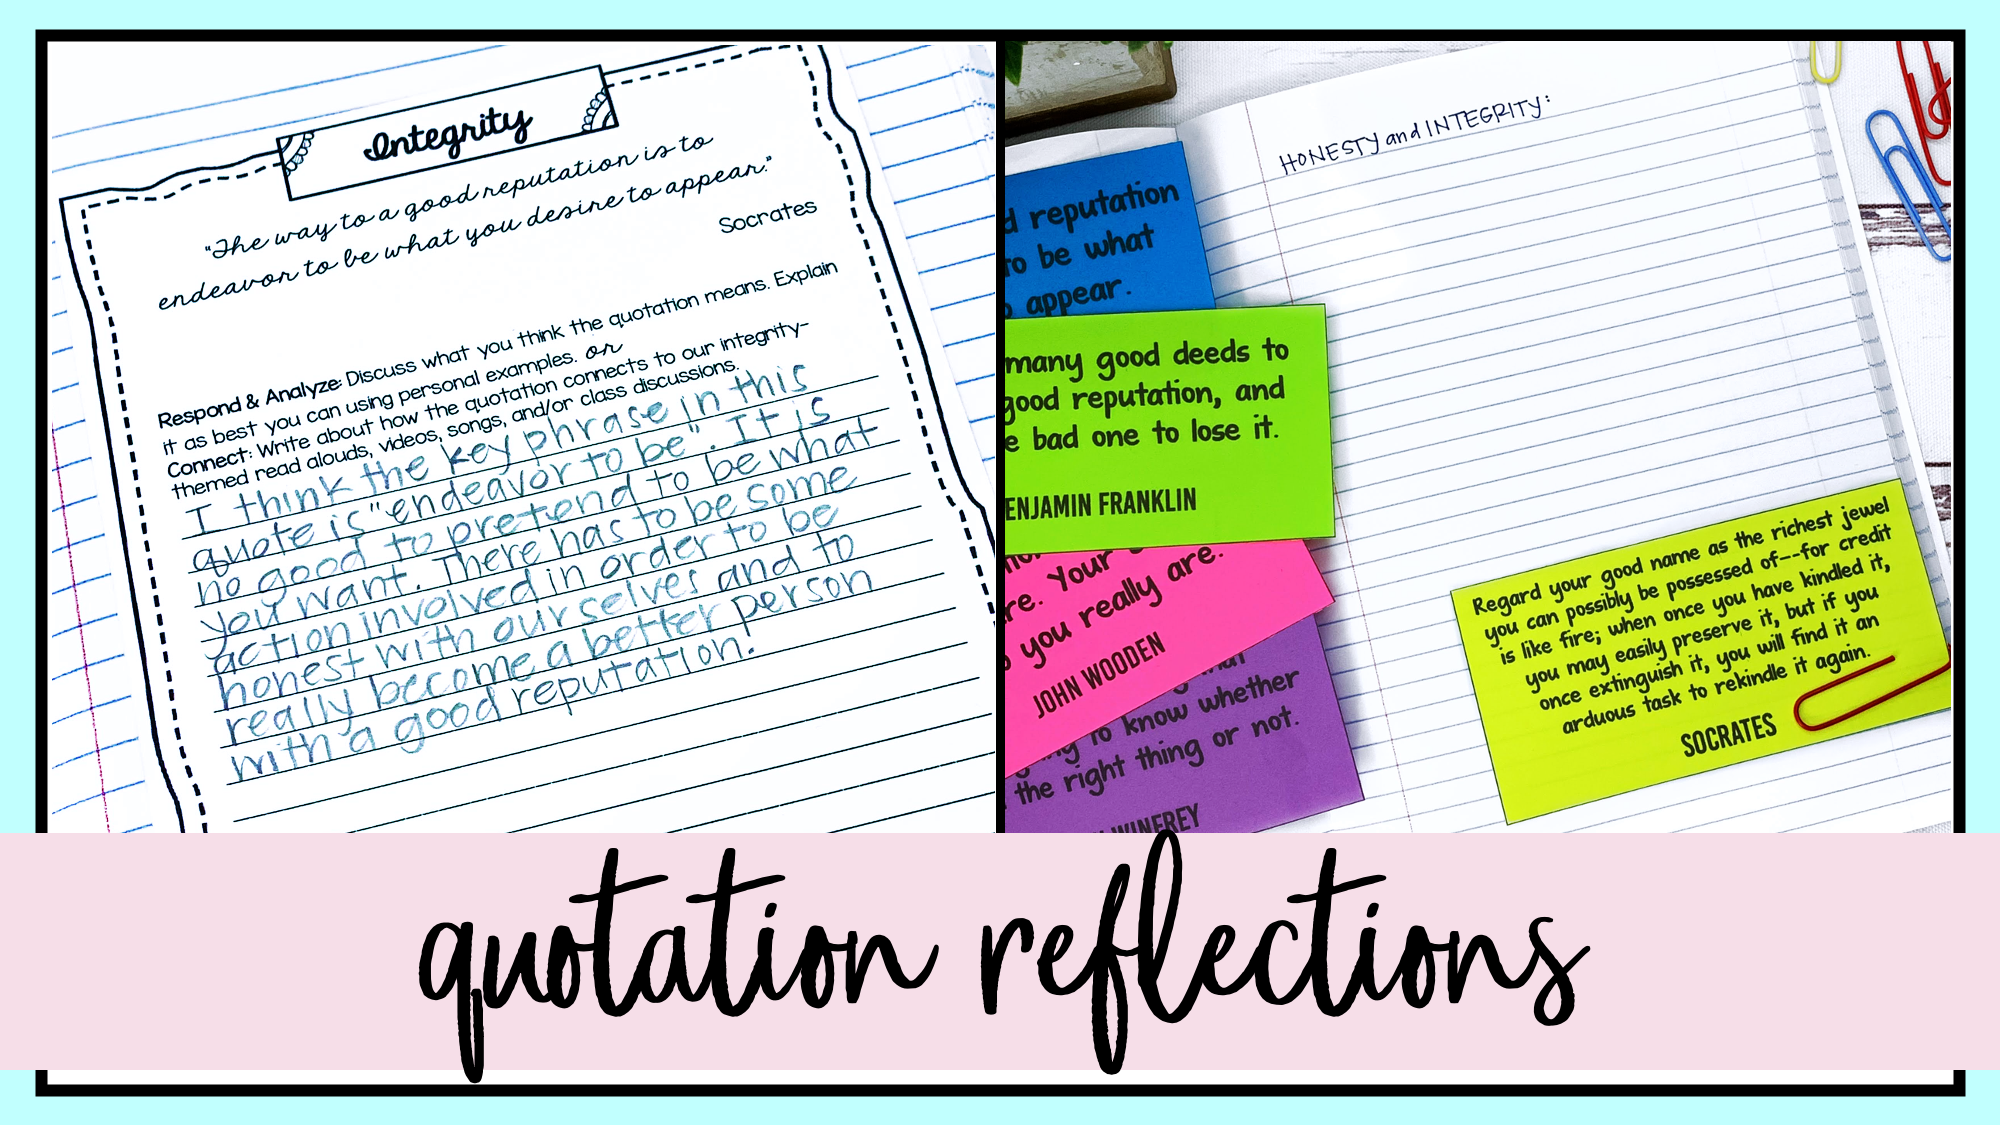 Integrity
"The way to a good reputation is to
endeavor to be what you desire to appear."
Socrates
Respond & Analyze: Discuss what you think the quotation means. Explain
it as best you can using personal examples. or
Connect: Write about how the quotation connects to our integrity-
themed read alouds, videos, songs, and/or class discussions.
I think the key phrase in this
quote is "endeavor to be". It is
no good to pretend to be what
you want. There has to be some
action involved in order to be
honest with ourselves and to
really become a better person
with a good reputation.
HONESTY and INTEGRITY:
d reputation
to be what
appear.
many good deeds to
good reputation, and
e bad one to lose it.
ENJAMIN FRANKLIN
re. Your
you really are.
JOHN WOODEN
to know whether
the right thing or not.
WINFREY
Regard your good name as the richest jewel
you can possibly be possessed of--for credit
is like fire; when once you have kindled it,
you may easily preserve it, but if you
once extinguish it, you will find it an
arduous task to rekindle it again.
SOCRATES
quotation reflections